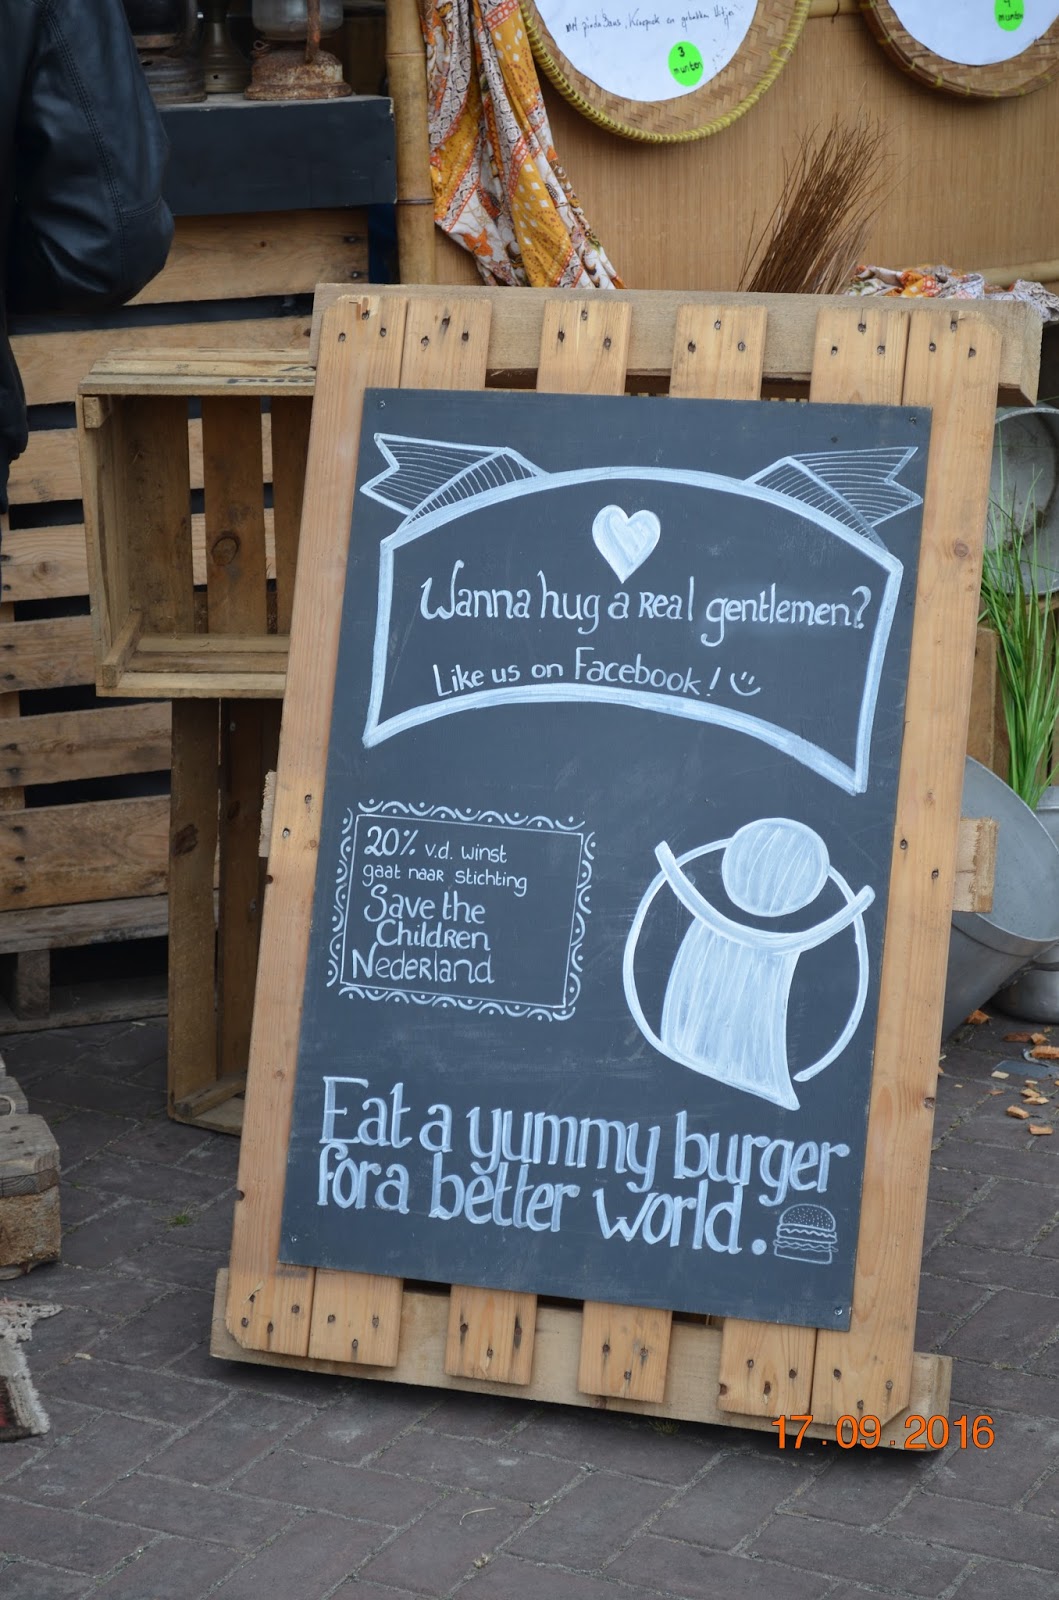 met pinda saus, Kroepoek en gebakken uitjes
3
munten
4
munten
Wanna hug a real gentlemen?
Like us on Facebook! :)
20% v.d. winst
gaat naar stichting
Save the
Children
Nederland
Eat a yummy burger
for a better world.
17.09.2016